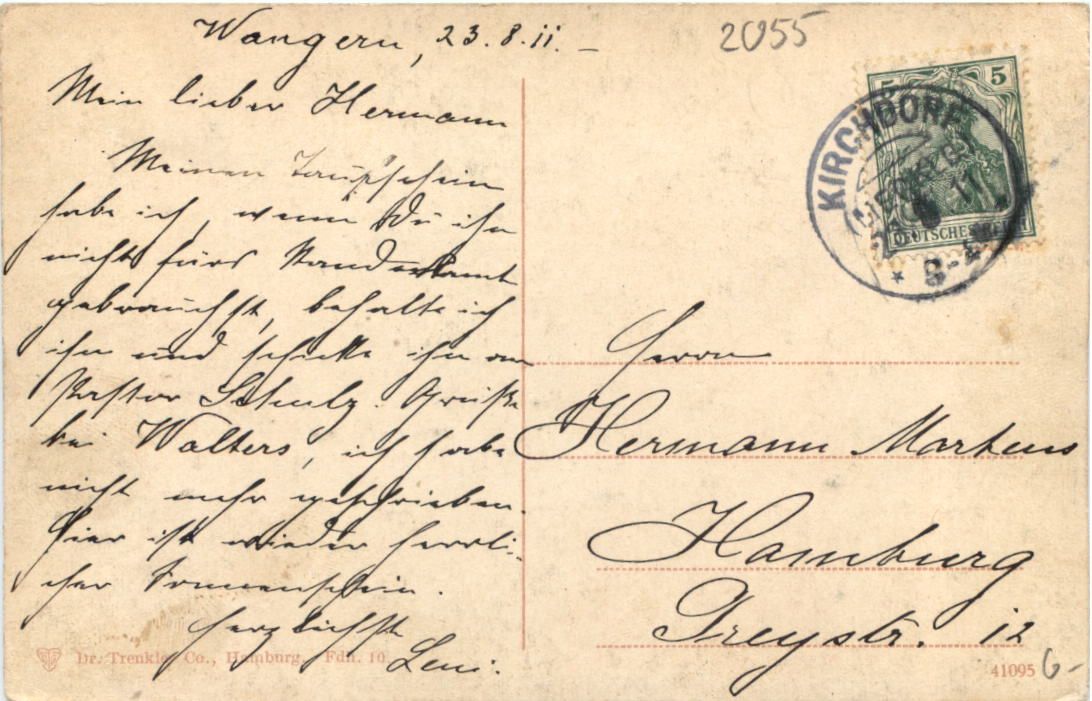 Wangern, 23.8.11.–
2055
Mein lieber Hermann
Meinen Taufschein
habe ich, wenn Du ihn
nicht fürs Standesamt
gebrauchst, behalte ich
ihn und schicke ihn an
Pastor Schulz. Grüße
bei Walters, ich habe
nicht mehr geschrieben.
Hier ist wieder herrli-
cher Sonnenschein.
Herzlichst
Leni.
5 5
DEUTSCHES REICH
KIRCHDORF
11
* 8-
Herrn
Hermann Martens
Hamburg
Freystr. 12
Dr. Trenkler Co., Hamburg. Fdh. 10.
41095
6-